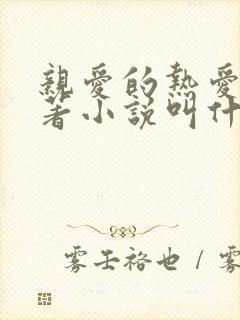 親愛的熱愛
著小說叫什
雾壬裕也 / 雾